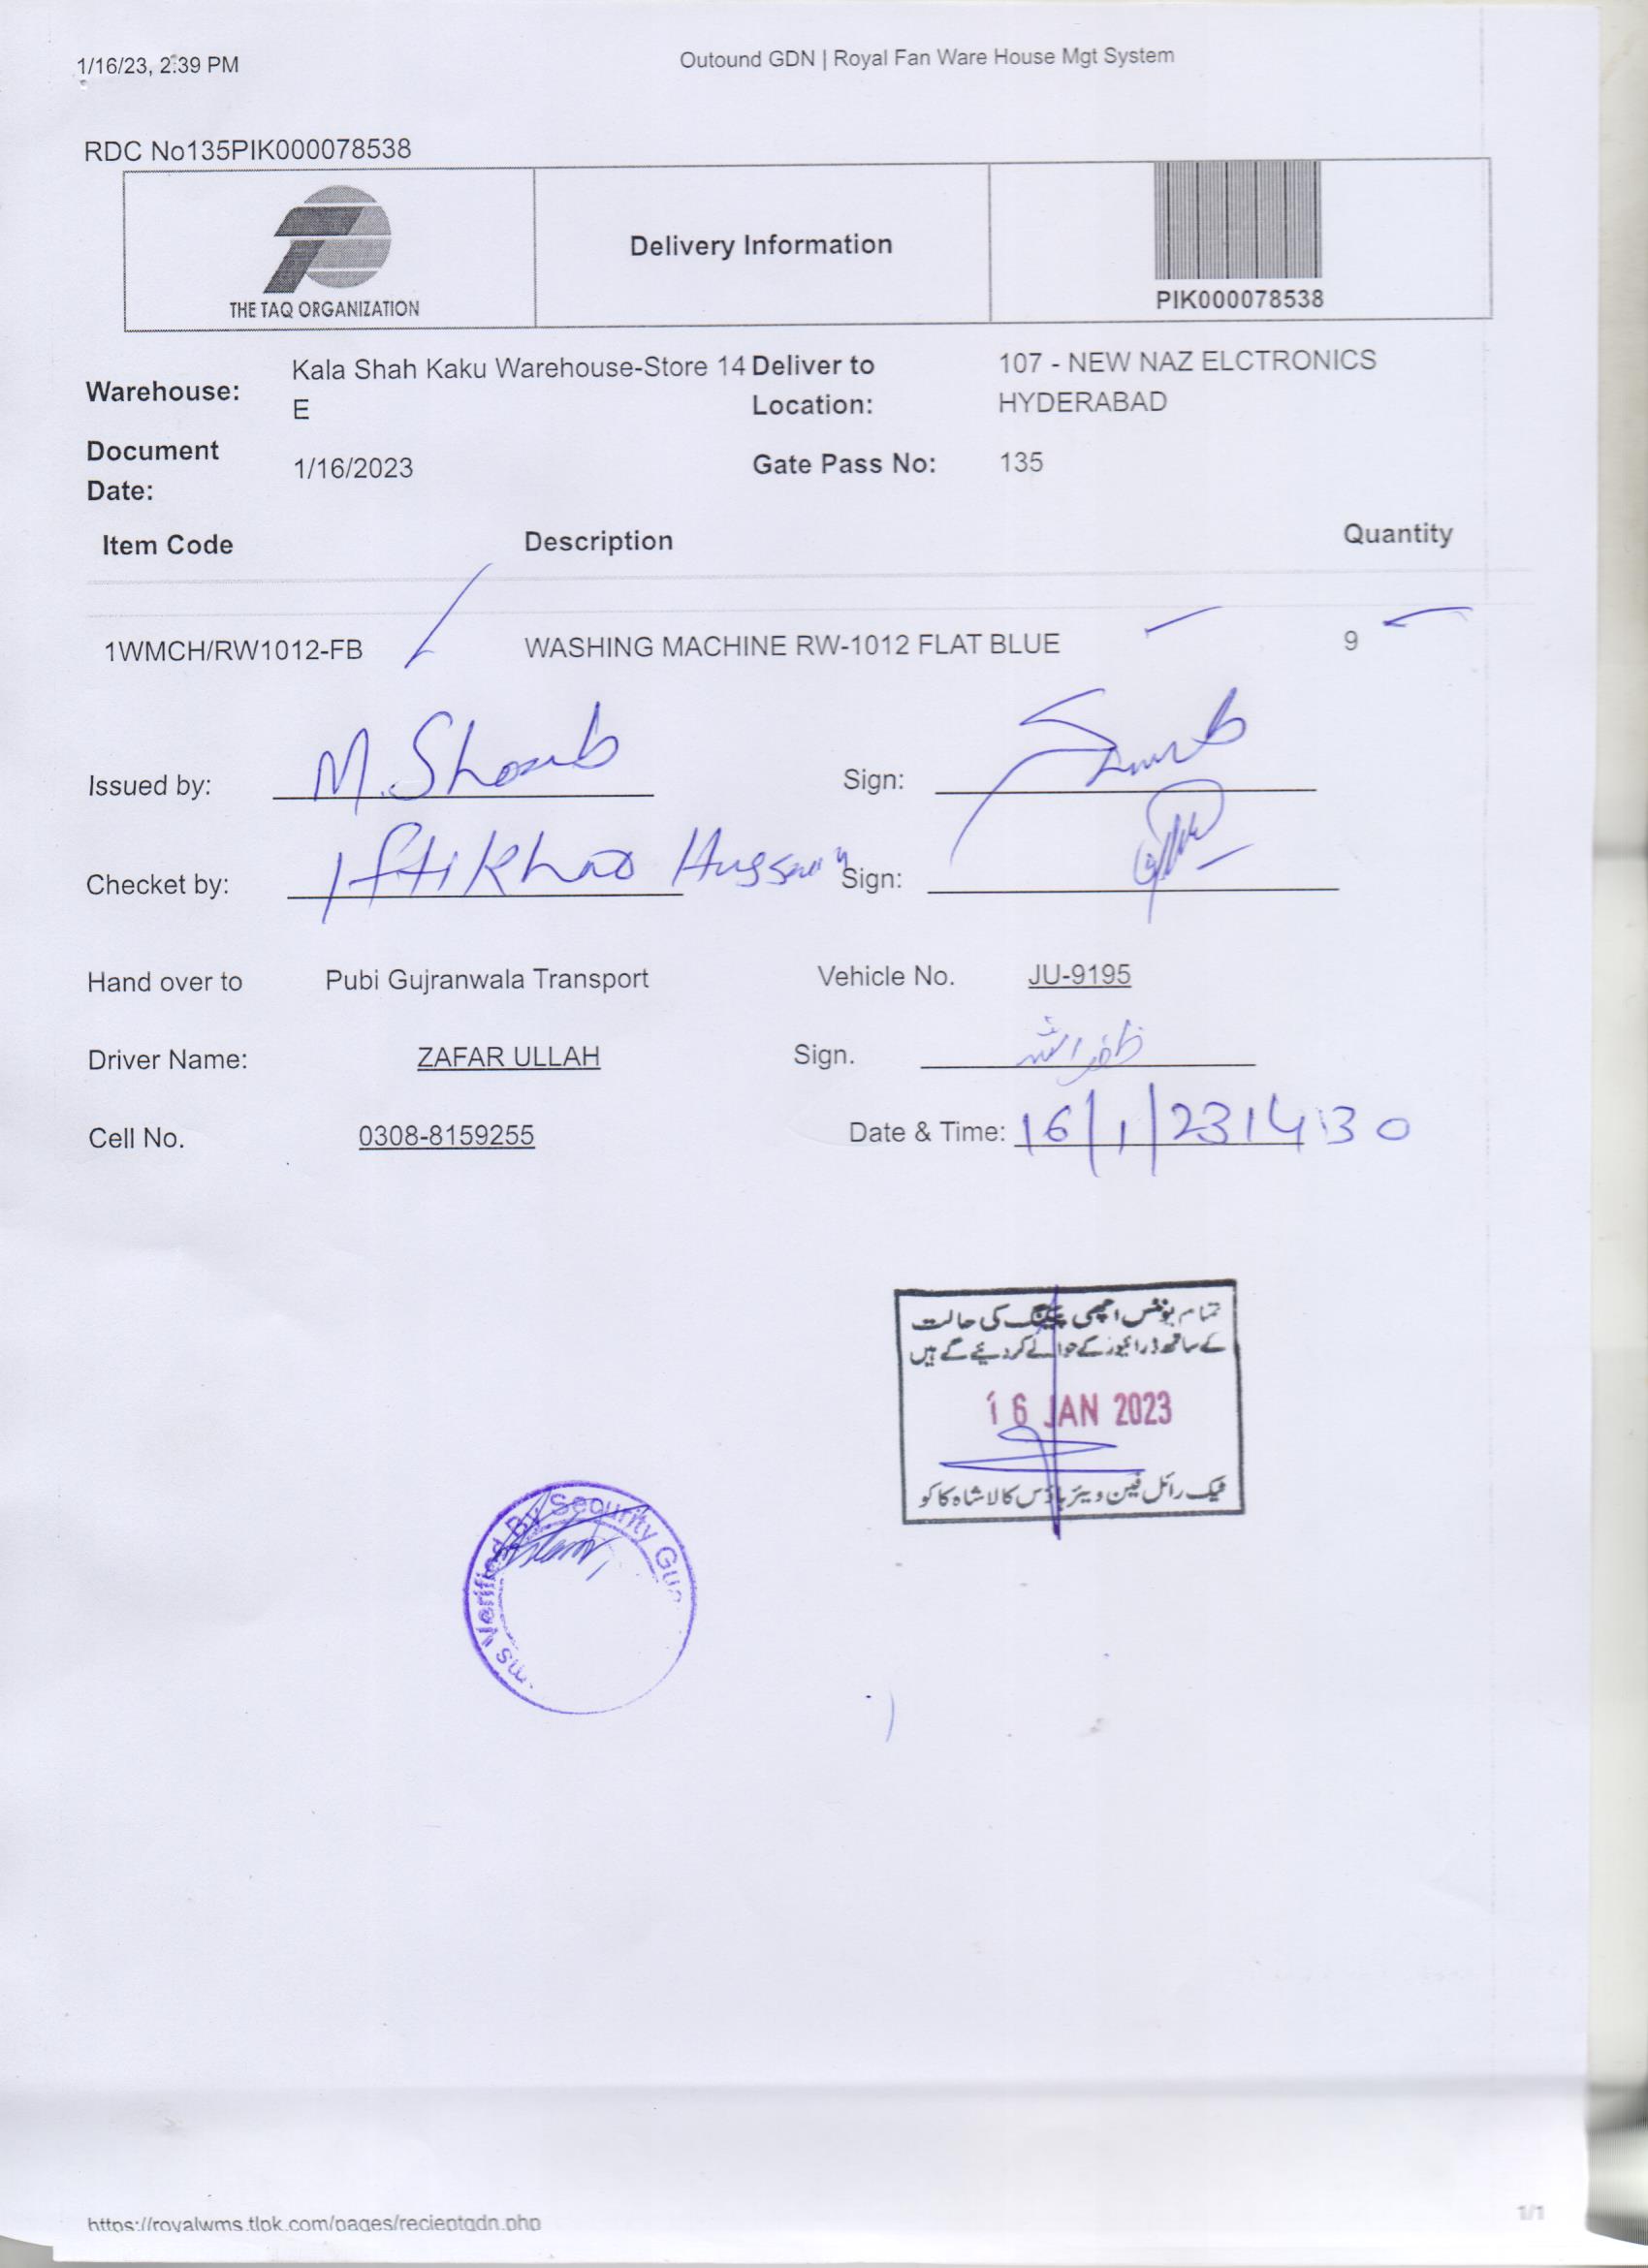 1/16/23, 2:39 PM
Outound GDN | Royal Fan Ware House Mgt System
RDC No135PIK000078538
THE TAQ ORGANIZATION
Delivery Information
PIK000078538
Warehouse: Kala Shah Kaku Warehouse-Store 14 E
Deliver to Location: 107 - NEW NAZ ELCTRONICS HYDERABAD
Document Date: 1/16/2023
Gate Pass No: 135
Item Code Description Quantity
1WMCH/RW1012-FB WASHING MACHINE RW-1012 FLAT BLUE 9
Issued by: M. Shoaib Sign:
Checket by: Iftikhar Hussain Sign:
Hand over to Pubi Gujranwala Transport Vehicle No. JU-9195
Driver Name: ZAFAR ULLAH Sign. ظفراللہ
Cell No. 0308-8159255 Date & Time: 16/1/23 14:30
تمام یونٹس اچھی پیکنگ کی حالت
کے ساتھ ڈرائیور کے حوالے کر دیئے گے ہیں
16 JAN 2023
ٹیک رائل فین ویئر ہاؤس کالا شاہ کاکو
Verified By Security
https://royalwms.tlpk.com/pages/recieptgdn.php
1/1